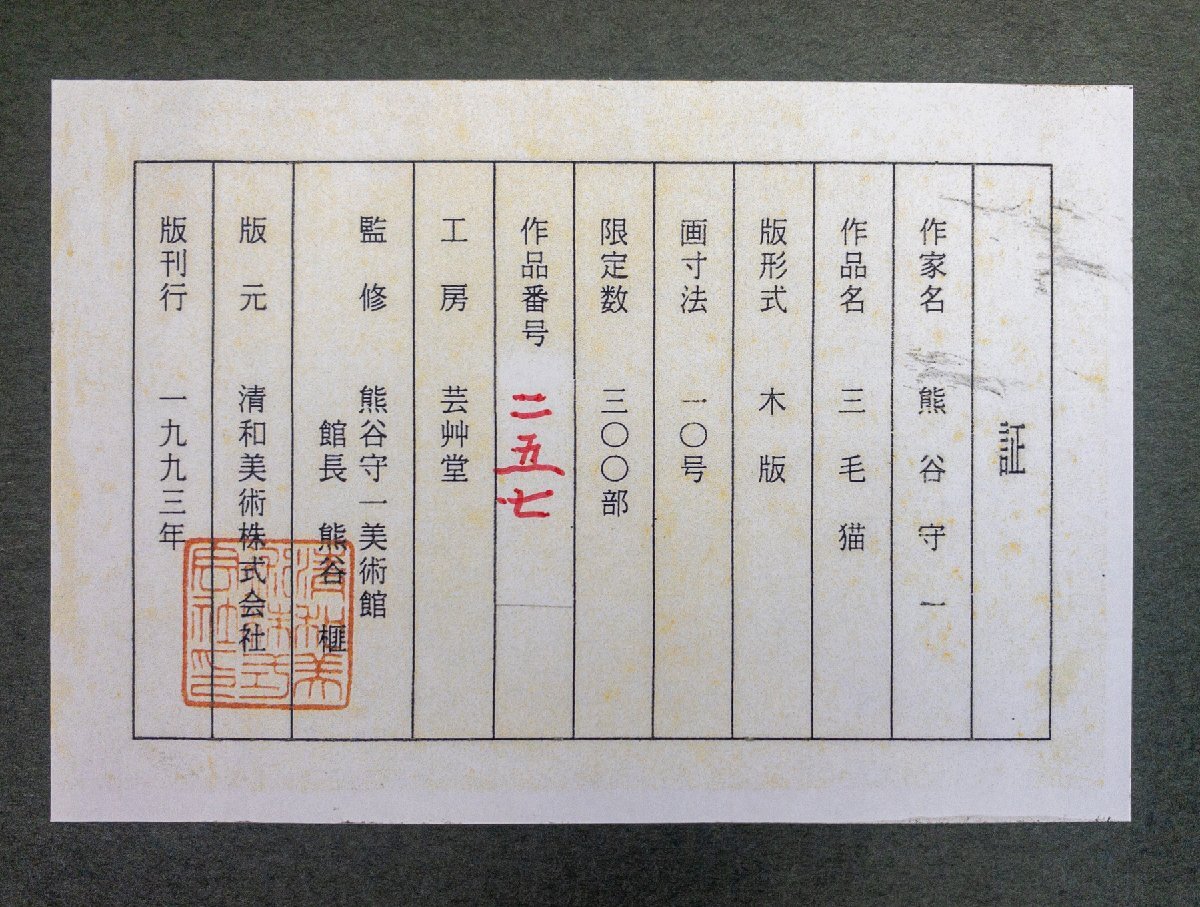 証
作家名 熊谷守一
作品名 三毛猫
版形式 木版
画寸法 一〇号
限定数 三〇〇部
作品番号 二五七
工房 芸艸堂
監修 熊谷守一美術館
館長 熊谷 榧
版元 清和美術株式会社
版刊行 一九九三年
清和美
術株式
会社印